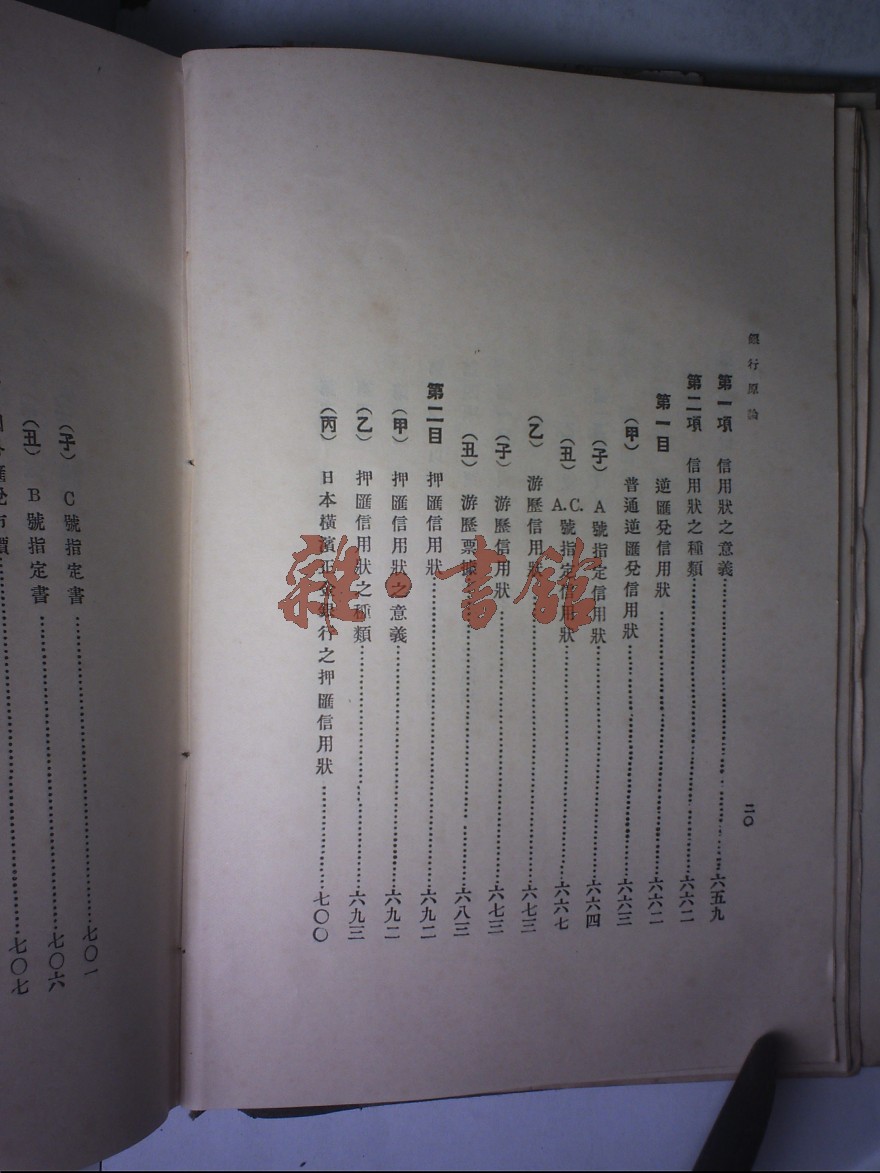 銀行原論
二〇
第一項　信用狀之意義……六五九
第二項　信用狀之種類……六六二
第一目　逆匯兌信用狀……六六二
(甲)　普通逆匯兌信用狀……六六三
(子)　A號指定信用狀……六六四
(丑)　A.C.號指定信用狀……六六七
(乙)　游歷信用狀……六七三
(子)　游歷信用狀……六七三
(丑)　游歷票據……六八三
第二目　押匯信用狀……六九二
(甲)　押匯信用狀之意義……六九二
(乙)　押匯信用狀之種類……六九三
(丙)　日本橫濱正金銀行之押匯信用狀……七〇〇
(子)　C號指定書……七〇一
(丑)　B號指定書……七〇六
匯兌市價……七〇七
雜·書館